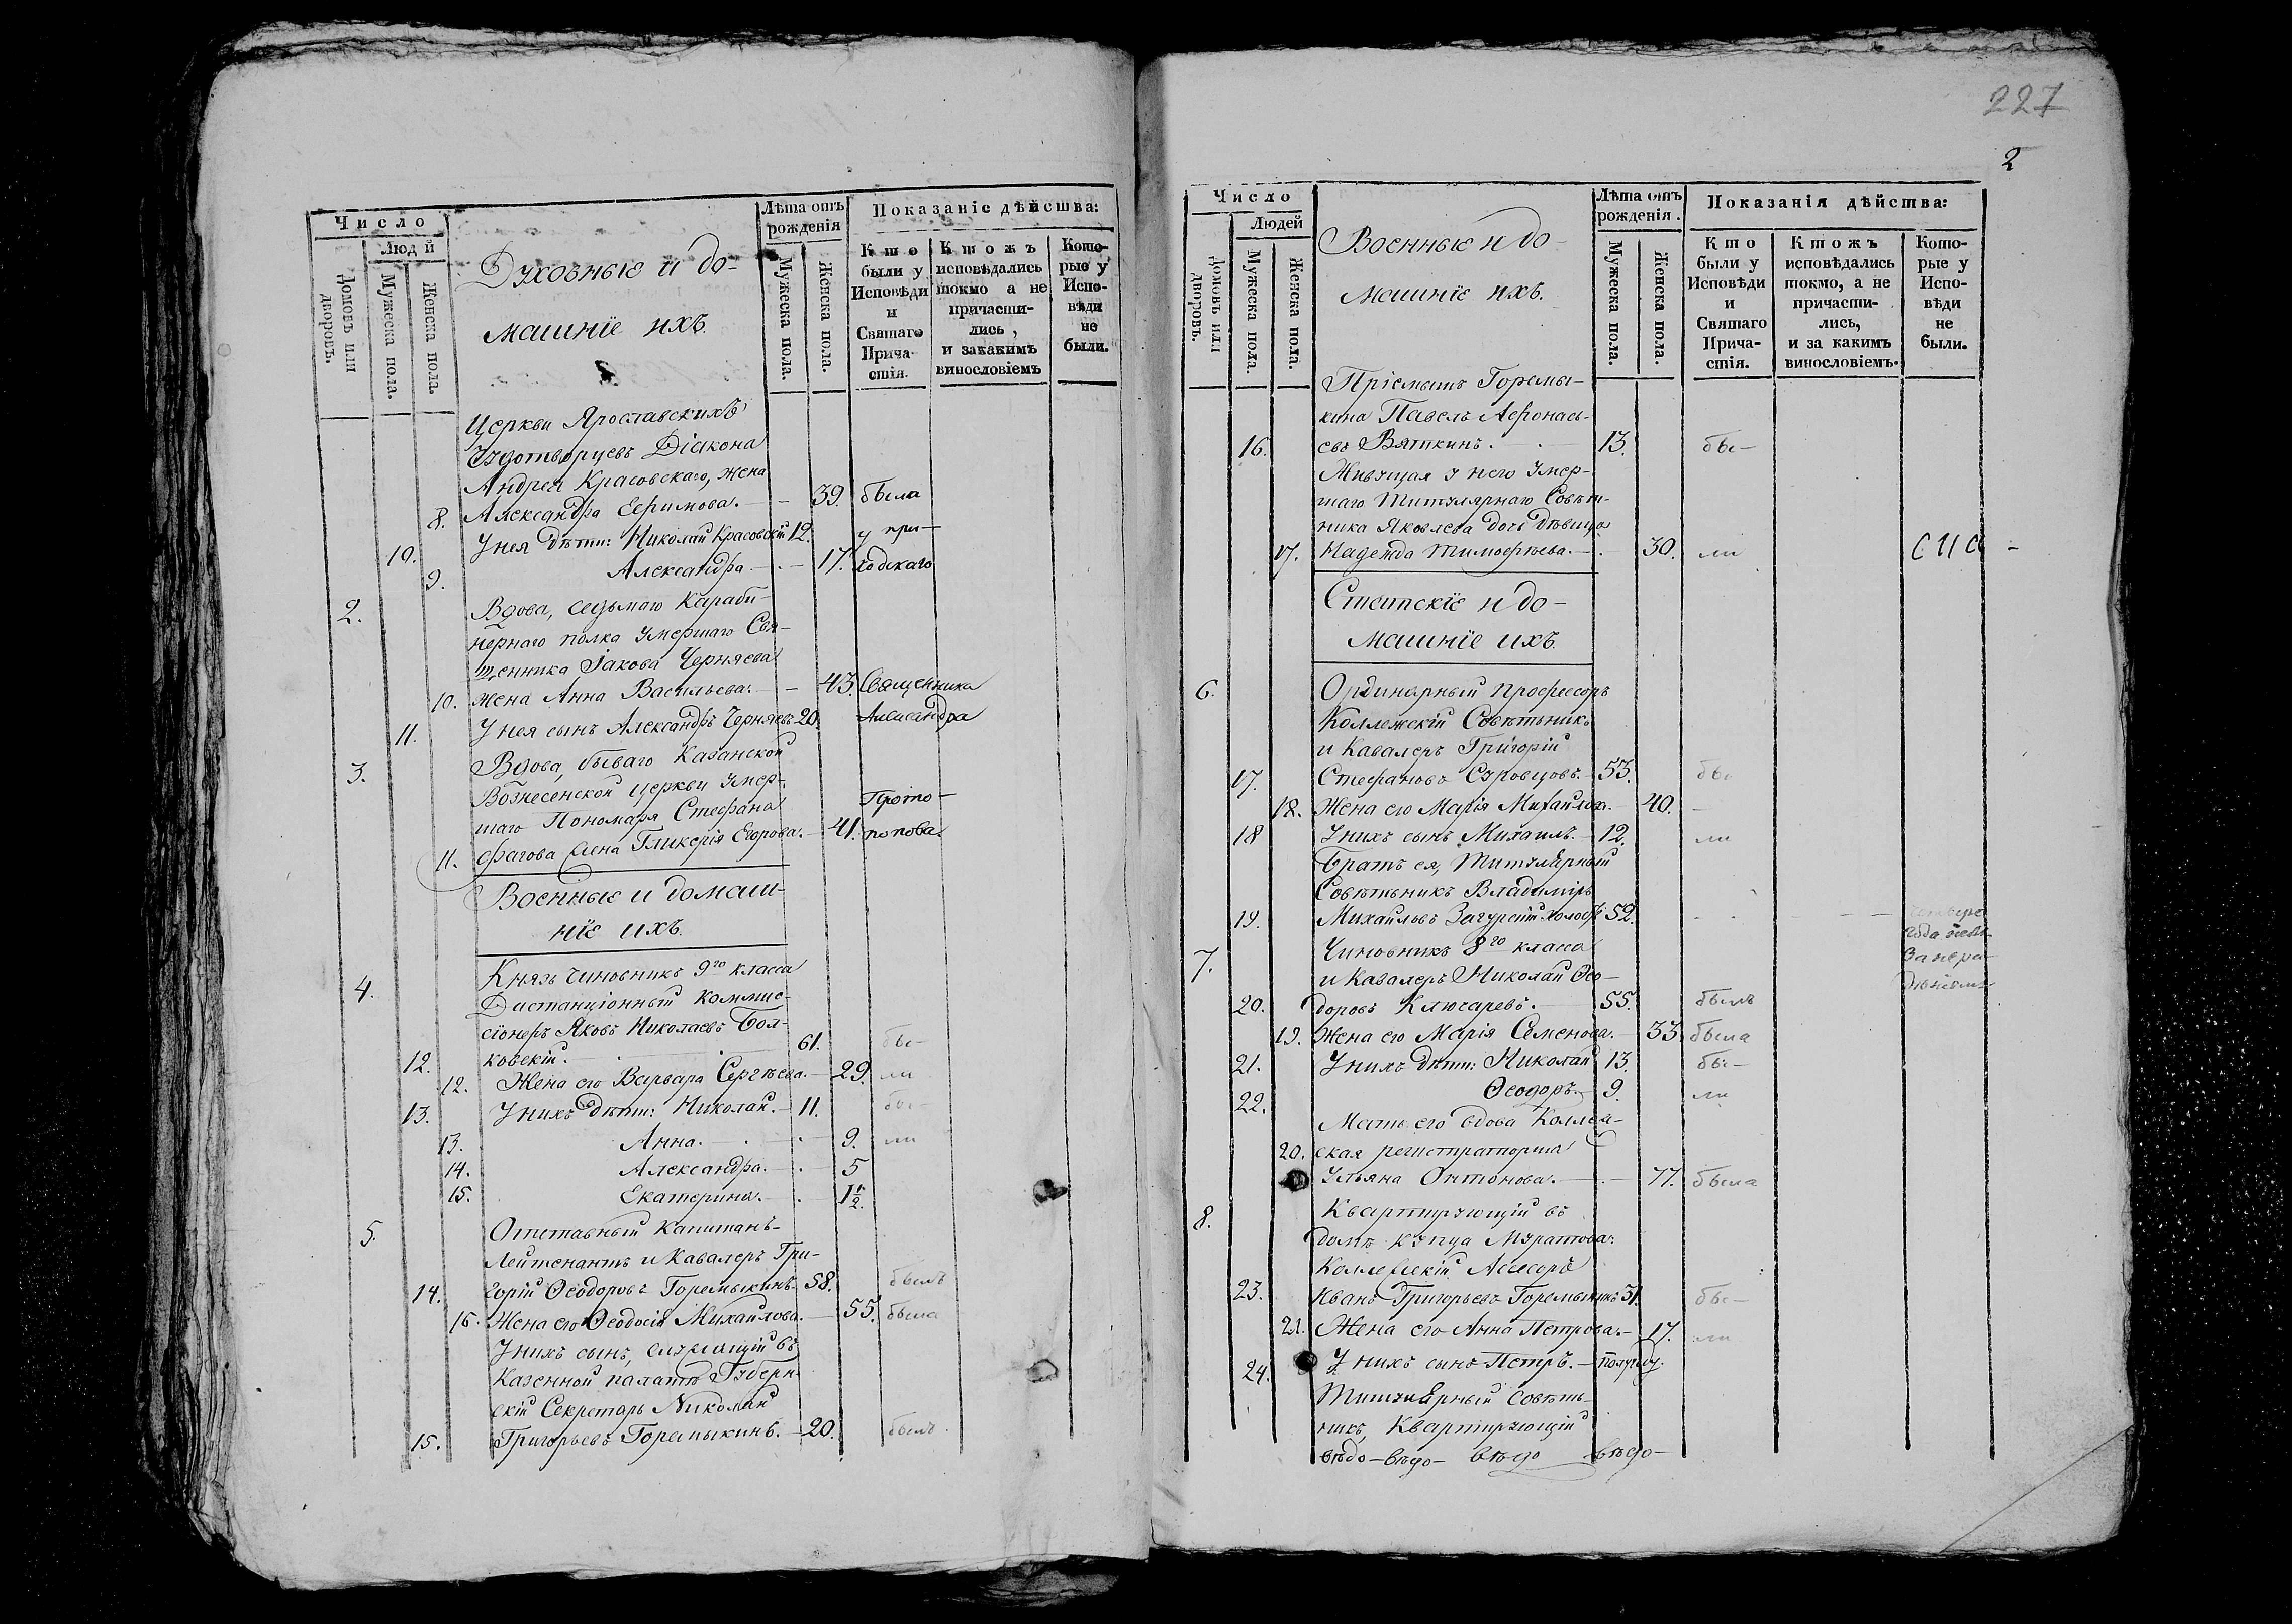 227
2
Число
Людй
Домовъ или дворовъ.
Мужеска пола.
Женска пола.
Духовные и до-
машніе ихъ.
Лѣта отъ
рожденія
Мужеска пола.
Женска пола.
Показаніе дѣйства:
Кто были у Исповѣди и Святаго Прича стія.
Ктожъ исповѣдались токмо а не причасти- лись, и закакимъ винословіемъ
Кото- рые у Испо- вѣди не были.
Церкви Ярославскихъ
Чудотворцевъ Діакона
Андрея Красовскаго, жена
8. Александра Ефимова. — 39. была
10. У нея дѣти: Николай Красовскій 12. у при-
9. Александра. — 17. ходскаго
2. Вдова, седьмаго Караби-
нернаго полка умершаго Свя-
щенника Іакова Черняева
10. жена Анна Васильева. — 43. Священника
11. У нея сынъ Александръ Черняевъ 20. Александра
3. Вдова, бываго Казанской
Вознесенской церкви умер-
шаго Пономаря Стефана Прото-
11. жена Гликерія Егорова. — 41. попова
Военные и домаш-
ніе ихъ.
4. Князь Чиновникъ 9го класса
Дистанціонный Коммис-
сіонеръ Яковъ Николаевъ Бол-
12. ховскій. 61. бы-
12. Жена его Варвара Сергѣева. — 29. ли
13. У нихъ дѣти: Николай. — 11. бы-
13. Анна. — 9. ли
14. Александра. — 5
15. Екатерина. — 1½.
5. Отставный Капитанъ-
Лейтенантъ и Кавалеръ Гри-
14. горій Ѳеодоровъ Горемыкинъ 58. былъ
16. Жена его Ѳеодосія Михайлова. — 55. была
У нихъ сынъ, служащій въ
Казенной палатѣ Губерн-
скій Секретарь Николай
15. Григорьевъ Горемыкинъ. — 20. былъ.
Число
Людей
Домовъ или дворовъ.
Мужеска пола.
Женска пола.
Военные и до-
машніе ихъ.
Лѣта отъ
рожденія.
Мужеска пола.
Женска пола.
Показанія дѣйства:
Кто были у Исповѣди и Святаго Прича- стія.
Ктожъ исповѣдались токмо, а не причасти- лись, и за какимъ винословіемъ.
Кото- рые у Испо- вѣди не были.
Пріемышъ Горемы-
кина Павелъ Афонась-
16. евъ Вяткинъ. — 13. бы-
Живущая у него умер-
шаго Титулярнаго Совѣт-
ника Яковлева дочь дѣвица
17. Надежда Тимофѣева. — 30. ли
Статскіе и до-
машніе ихъ.
6. Ординарный профессоръ
Коллежскій Совѣтникъ
и Кавалеръ Григорій
17. Стефановъ Суровцовъ. 53. бы
18. Жена его Марія Михайлова. 40. —
18 У нихъ сынъ Михаилъ. — 12. ли
Братъ ея, Титулярный
Совѣтникъ Владиміръ
19. Михайловъ Загурскій холостъ 52.
7. Чиновникъ 8го класса
и Кавалеръ Николай Ѳео-
20. доровъ Ключаревъ. — 55. былъ
19. Жена его Марія Семенова. — 33 была
21. У нихъ дѣти: Николай 13. бы-
22. Ѳеодоръ. 9. ли
Мать его вдова Коллеж-
20. ская регистраторша
Ульяна Онтонова. — 77. была
8. Квартирующій въ
домѣ купца Муратова:
Коллежскій Асесоръ
23. Иванъ Григорьевъ Горемыкинъ 31. бы-
21. Жена его Анна Петрова. — 17. ли
24. У нихъ сынъ Петръ. — полугоду.
Титулярный Совѣт-
никъ, Квартирующій